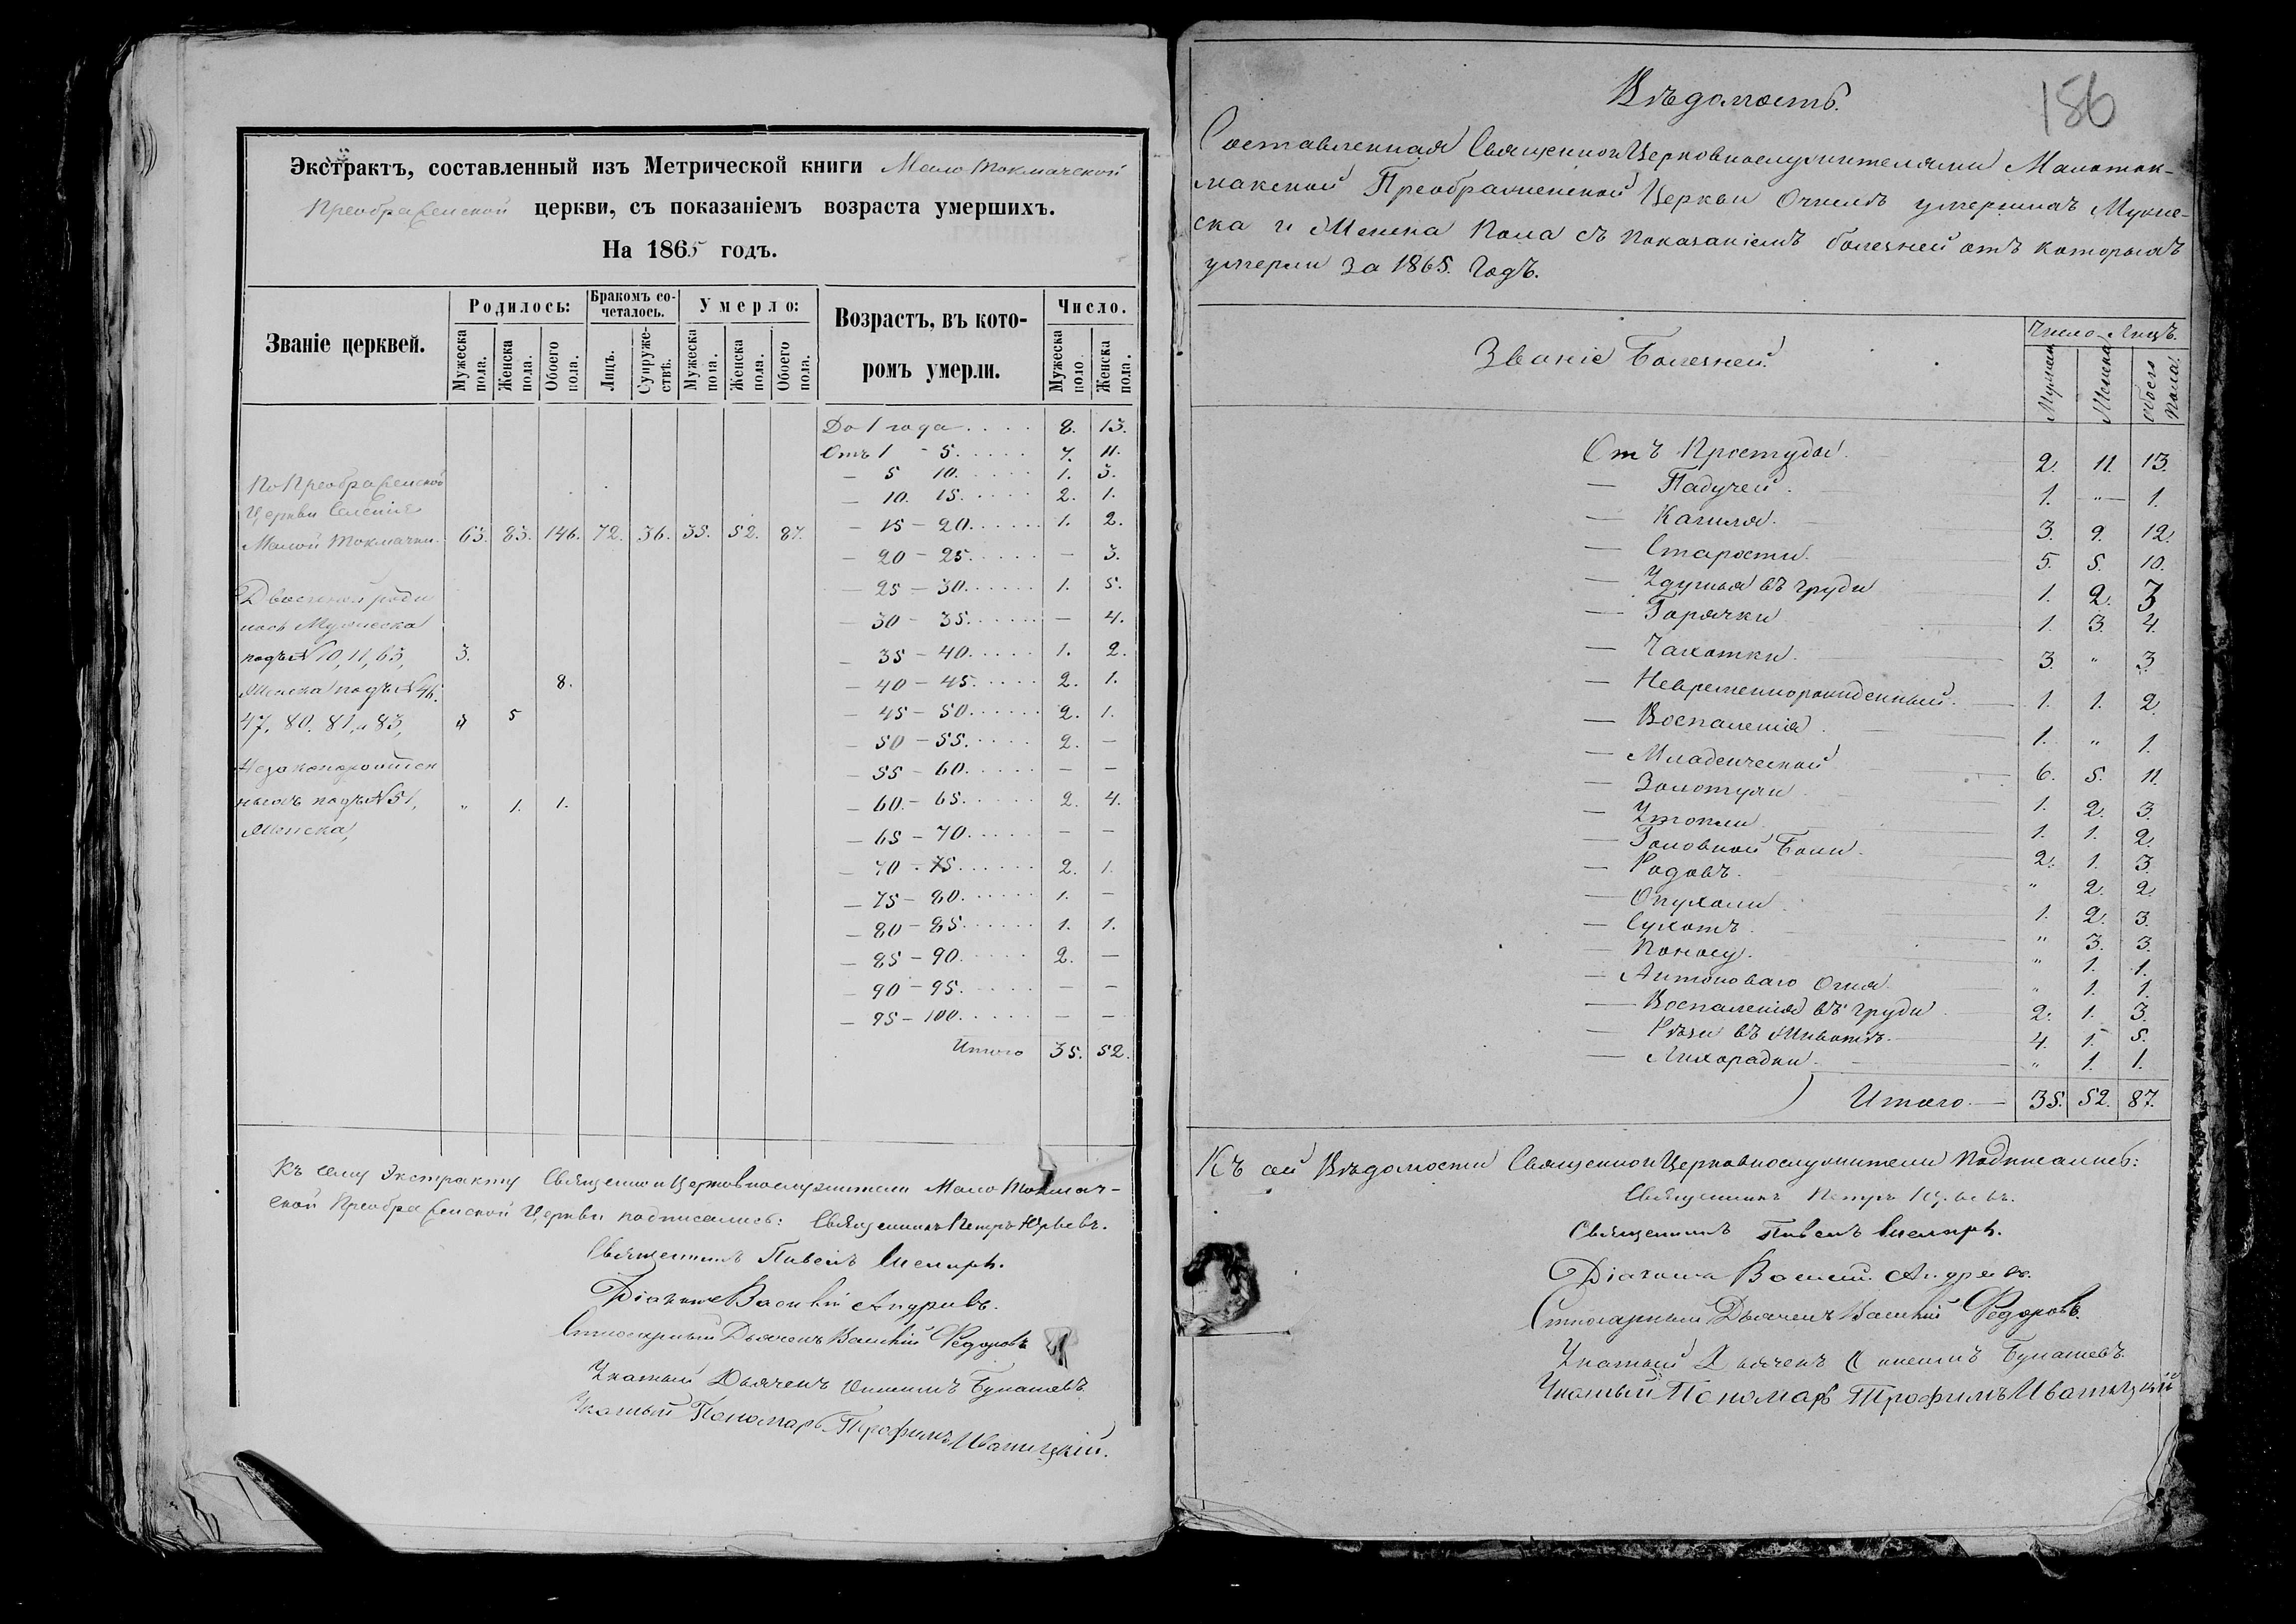 Экстрактъ, составленный изъ Метрической книги Мало Токмачской
Преображенской церкви, съ показаніемъ возраста умершихъ.
На 1865 годъ.
Званіе церквей.
Родилось:
Бракомъ со-
четалось.
Умерло:
Возрастъ, въ кото-
ромъ умерли.
Число.
Мужеска пола.
Женска пола.
Обоего пола.
Лицъ.
Супруже-
ствъ.
Мужеска пола.
Женска пола.
Обоего пола.
Мужеска поло
Женска пола.
По Преображенской
Церкви Селенія
Малой Токмачки. 63. 83. 146. 72. 36. 35. 52. 87.
Двоенной роди
лось Мужеска
подъ №10, 11, 63, 3.
Женска подъ №46. 8.
47, 80, 81, и 83, " 5
Незаконорожден
ныхъ подъ №51, " 1. 1.
Женска,
До 1 года 8. 13.
Отъ 1 - 5. 7. 11.
— 5 10. 1. 3.
— 10. 15. 2. 1.
— 15 - 20. 1. 2.
— 20 - 25. — 3.
— 25 - 30. 1. 5.
— 30 - 35. — 4.
— 35 - 40. 1. 2.
— 40 - 45. 2. 1.
— 45 - 50. 2. 1.
— 50 - 55. 2. —
— 55 - 60. — —
— 60. - 65. 2. 4.
— 65 - 70. — —
— 70 - 75. 2. 1.
— 75 - 80. 1. —
— 80 - 85. 1. 1.
— 85 - 90. 2. —
— 90 - 95. — —
— 95 - 100. — —
Итого 35. 52.
Къ сему Экстракту Священно и Церковнослужители Мало Токмач-
ской Преображенской Церкви подписались: Священникъ Петръ Юрьевъ.
Священникъ Павелъ
Діаконъ Василій Андреевъ.
Дьячекъ Василій Федоровъ
Указный Дьячекъ
Указный Пономарь Трофимъ Иваницкій.
156
Вѣдомость.
Составленная Священно и Церковнослужителями Малоток-
макской Преображенской Церкви О числѣ умершихъ Муже-
ска и Женска Пола съ показаніемъ болезней отъ которыхъ
умерли за 1865. Годъ.
Званіе Болезней.
Число Лицъ.
Мужеск
Женска
обоего Пола.
Отъ Простуды 2. 11. 13.
— Падучей. 1. " 1.
— Кашля. 3. 9. 12.
— Старости. 5. 5. 10.
— Удушья въ груди 1. 2. 3
— Горячки 1. 3. 4.
— Чахотки. 3. " 3
— 1. 1. 2.
— Воспаленія. 1. " 1.
— Младенческой 6. 5. 11.
— Золотухи 1. 2. 3.
— Утопли 1. 1. 2.
— Головной Боли. 2. 1. 3.
— Родовъ. " 2. 2.
— Опухоли 1. 2. 3.
— Сухотъ. " 3. 3.
— Поносу. " 1. 1.
— Антоноваго Огня. " 1. 1.
— Воспаленія въ груди. 2. 1. 3.
— Рѣзи въ Животѣ. 4. 1. 5.
— Лихорадки. " 1. 1.
Итого. 35. 52. 87.
Къ сей Вѣдомости Священно и Церковнослужители Подписались:
Священникъ Петръ Юрьевъ.
Священникъ Павелъ
Діаконъ Василій Андреевъ.
Дьячекъ Василій Федоровъ.
Указный Дьячекъ
Указный Пономарь Трофимъ Иваницкій